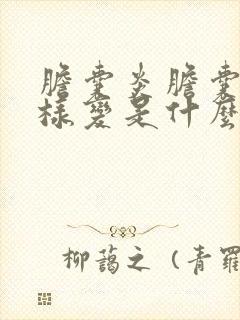 膽囊炎膽囊
樣變是什麼
柳藹之（青羅